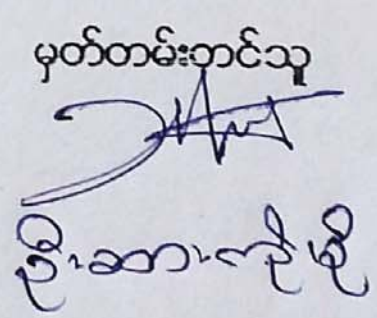 မှတ်တမ်းတင်သူ
ဦးဆားကိုဖို